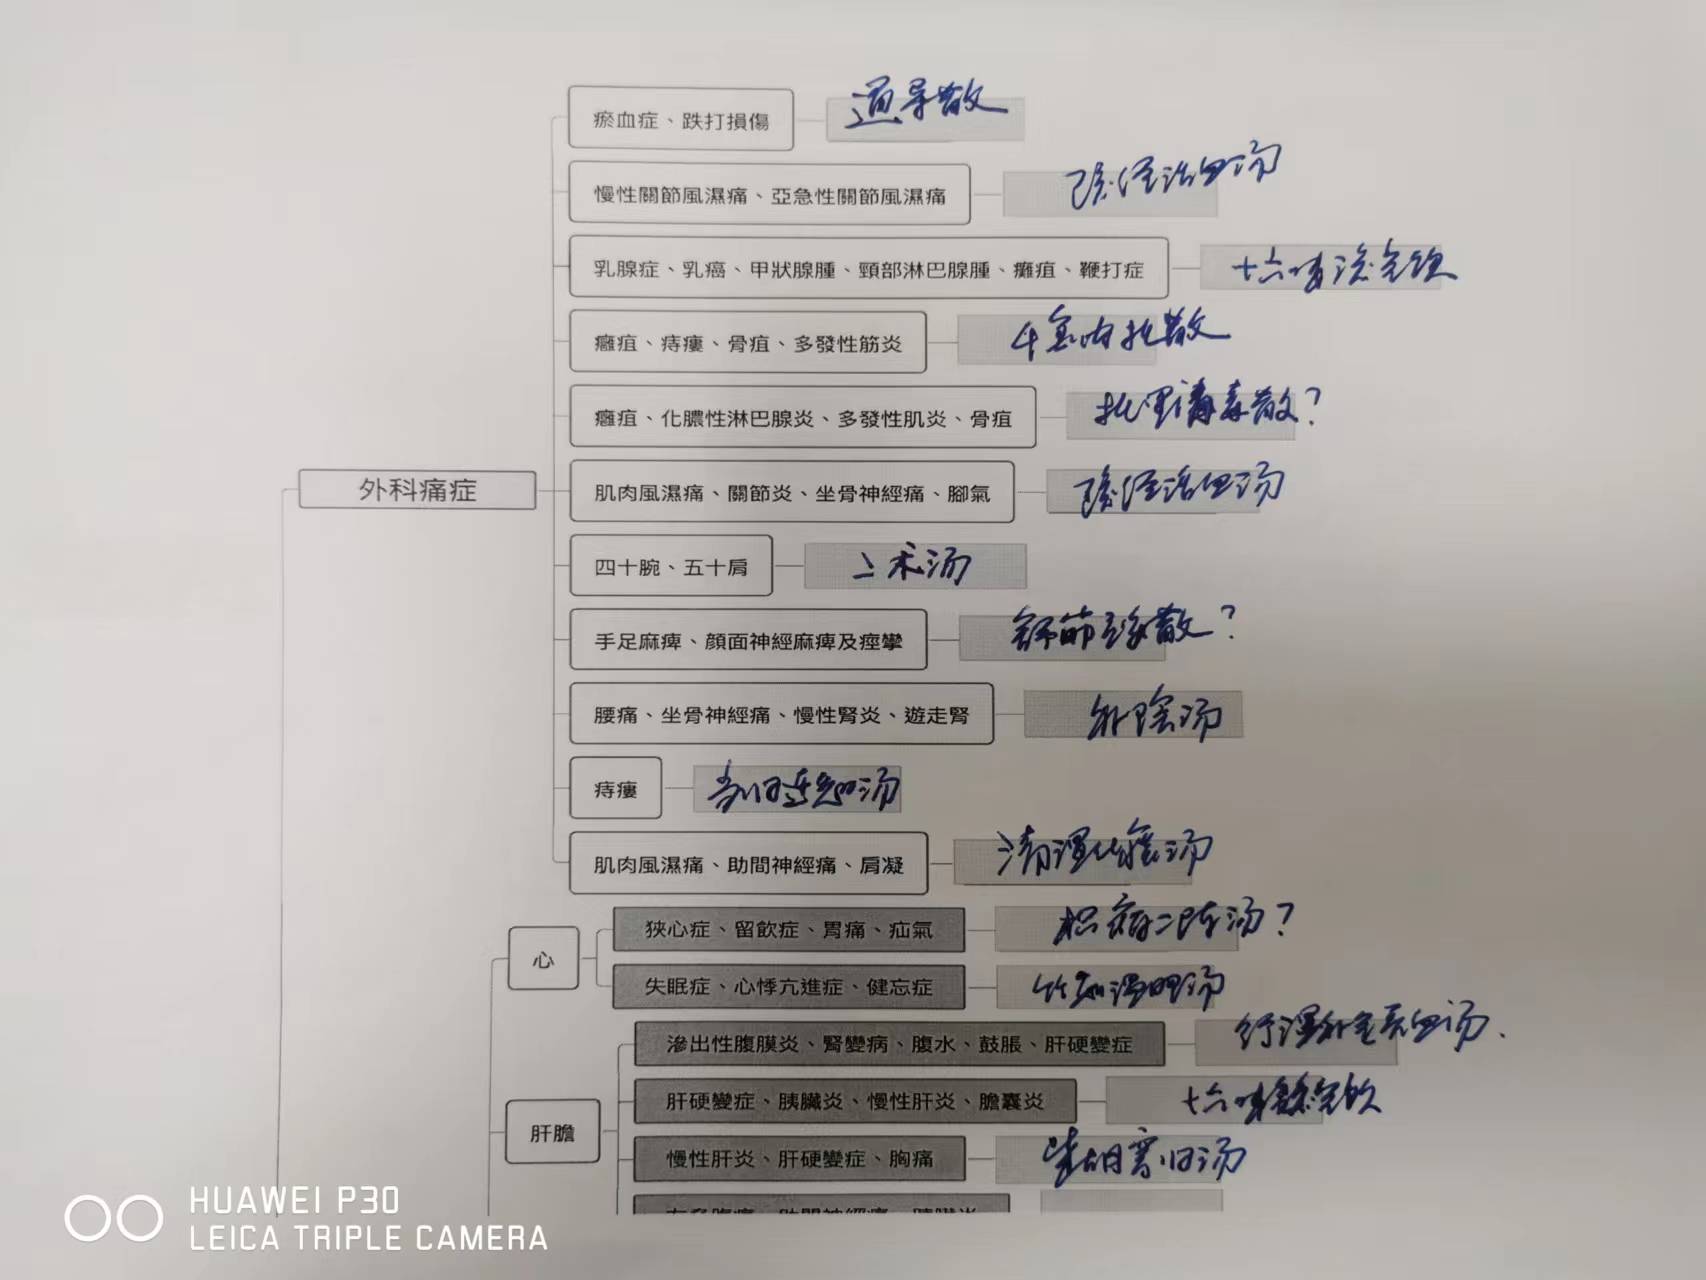 瘀血症、跌打損傷 通导散
慢性關節風濕痛、亞急性關節風濕痛 疏经活血汤
乳腺症、乳癌、甲狀腺腫、頸部淋巴腺腫、癰疽、鞭打症 十六味流气饮
癰疽、痔瘻、骨疽、多發性筋炎 千金内托散
癰疽、化膿性淋巴腺炎、多發性肌炎、骨疽 托里消毒散?
外科痛症
肌肉風濕痛、關節炎、坐骨神經痛、腳氣 疏经活血汤
四十腕、五十肩 二术汤
手足麻痺、顏面神經麻痺及痙攣 舒筋立安散?
腰痛、坐骨神經痛、慢性腎炎、遊走腎 补阴汤
痔瘻 汤
肌肉風濕痛、助間神經痛、肩凝 清湿化痰汤
狹心症、留飲症、胃痛、疝氣 枳缩二陈汤?
心
失眠症、心悸亢進症、健忘症 竹茹温胆汤
滲出性腹膜炎、腎變病、腹水、鼓脹、肝硬變症 行湿补气养血汤.
肝硬變症、胰臟炎、慢性肝炎、膽囊炎 十六味流气饮
肝膽
慢性肝炎、肝硬變症、胸痛 柴胡汤
HUAWEI P30
LEICA TRIPLE CAMERA